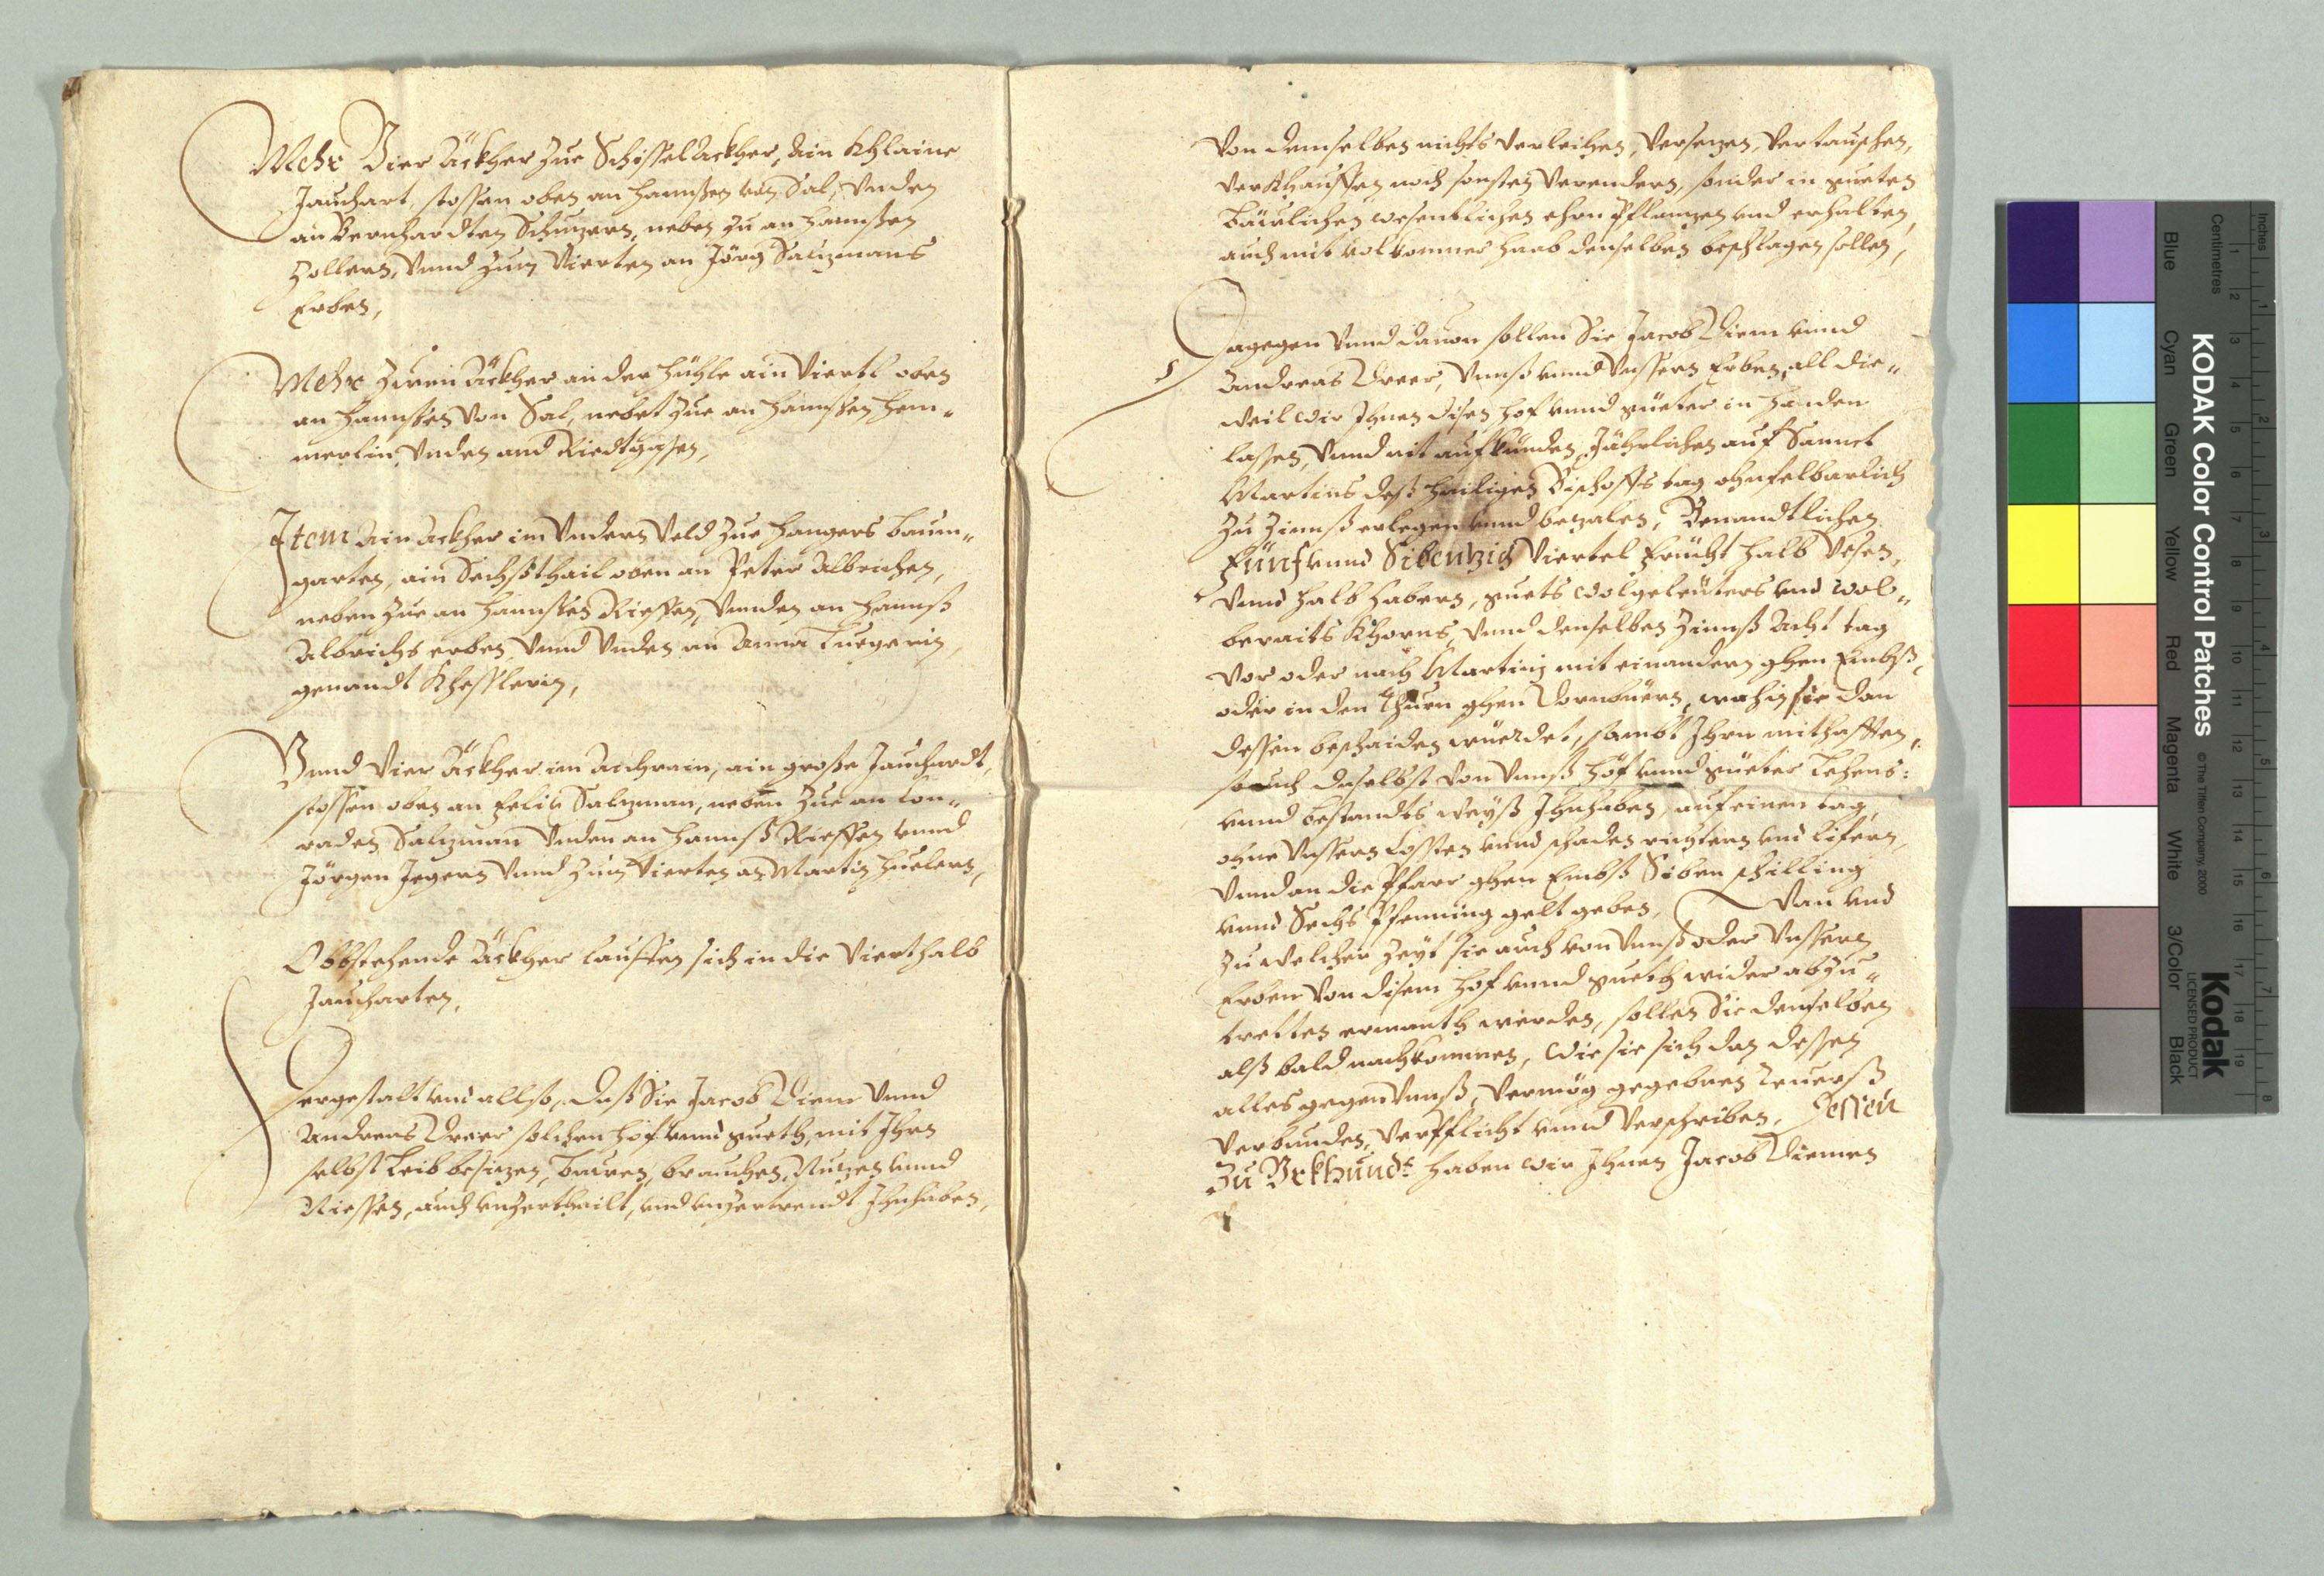 Mehr Vier Äckher zue Schisselackher, ain Khlaine
Jauchart, stossen oben an Hannßen von Sal, Vnden
an Bernhardten Schwzern, neben zu an Hannßen
Zollern, Vnnd zum Vierten an Jörg Salzmans
Erben,
Mehr zwen Äckher an der Hühle ain Viertl oben
an Hannßen Von Sal, nebet zue an Hannßen Hem¬
merlin, Vnden and Riedtgassen,
Item Ain Ackher im Vndern Veld zue Hangers baum¬
garten, ain Sechßthail oben an Peter Albrichen,
neben zue an Hannßen Rieffen, Vnnden an Hannß
Albrichs erben, Vnnd Vnden an Anna Luegerin,
genandt Khesslerin,
Vnnd Vier Äckher im Achrain, ain große Jauchardt,
stossen oben an Felix Salzman, neben zue an Con¬
raden Salzman Vnden an Hannß Rieffen vnnd
Jörgen Jegern Vnnd zum Vierten an Martin Huelern,
Obbstehende Äckher lauffen sich in die Vierthalb
Jaucharten,
Dergestalt vnd allso, daß Sie Jacob Diem Vnnd
Andreas Dreer solchen hof vnnd gueth, mit Ihrn
selbst Leib besizen, bauwen, brauchen, Nuzen vnnd
Niessen, auch vnzertheilt, vnd vnzertrendt Ihnhaben,
Von demselben nichts verleihen, Versezen, Vertauschen,
Verkhauffen noch sonsten Verendern, sonder in gueten
bäwlichen wesentlichen ehrn Pflanzen vnd erhalten,
auch mit volkomner haab denselben beschlagen sollen,
Dagegen Vnnd dauon sollen Sie Jacob Diem vnnd
Andreas Dreer, Vnnß vnnd Vnssern Erben, all die¬
weil wir Ihnen disen hof vnnd güeter in handen
lassen, Vnnd nit aufkünden, Jährlichen auf Sannct
Martins deß hailigen Bischoffs tag ohnfelbarlich
zu Zinnß erlegen vnnd bezalen, Benandtlichen
Fünf vnnd Sibentzich Viertel Frücht halb Vesen,
Vnnd halb habern, guets wolgeleüters vnd wol¬
beraits Khorns, Vnnd denselben Zinnß Acht tag
vor oder nach Martinj mit einandern ghen Embß,
oder in den Thurn ghen Dornbüern, wahin sie dan
dessen beschaiden würdet, sambt Ihren mithafften,
so auch daselbst von Vnnß höf vnnd güeter Lehens:
vnnd bestandts weyß Ihnhaben, auf einen tag,
ohne Vnssern Costen vnnd schaden richten vnd lifern,
Vnnd an die Pfarr ghen Embß Siben schilling
vnnd Sechs Pfenning gelt geben, Wan vnd
zu welcher Zeyt sie auch von Vnnß oder Vnssern
Erben Von disem hof vnnd gueth wider abzu¬
tretten ermanth werden, sollen Sie denselben
alß bald nachkommen, wie sie sich dan dessen
alles gegen Vnnß, Vermög gegebnen Reuerß
Verbunden, Verpflicht vnnd Verschriben, Dessen
Zu Vrkhundt haben wir Ihnen Jacob Diemen